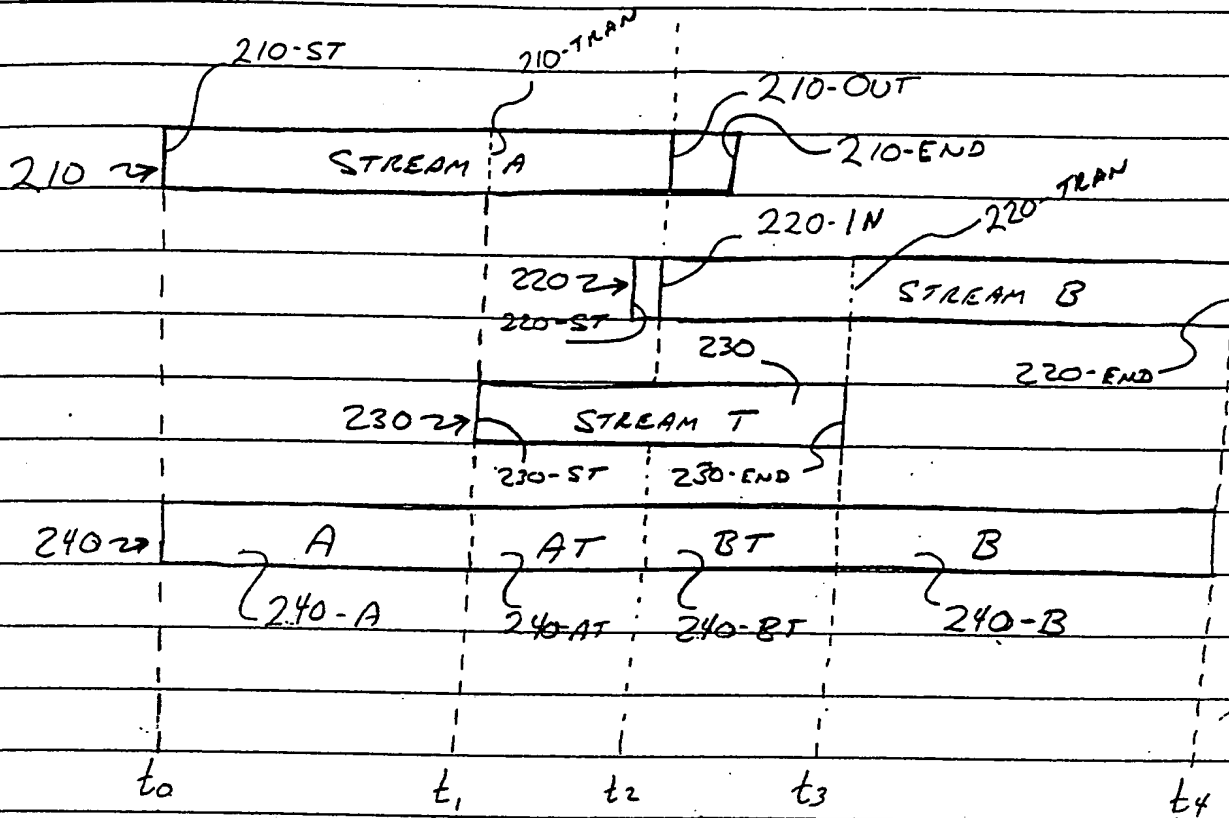 210-ST
210-TRAN
210-OUT
210-END
210
STREAM A
220-TRAN
220-IN
220
STREAM B
220-ST
230
220-END
230
STREAM T
230-ST
230-END
240
A
AT
BT
B
240-A
240-AT
240-BT
240-B
t0
t1
t2
t3
t4